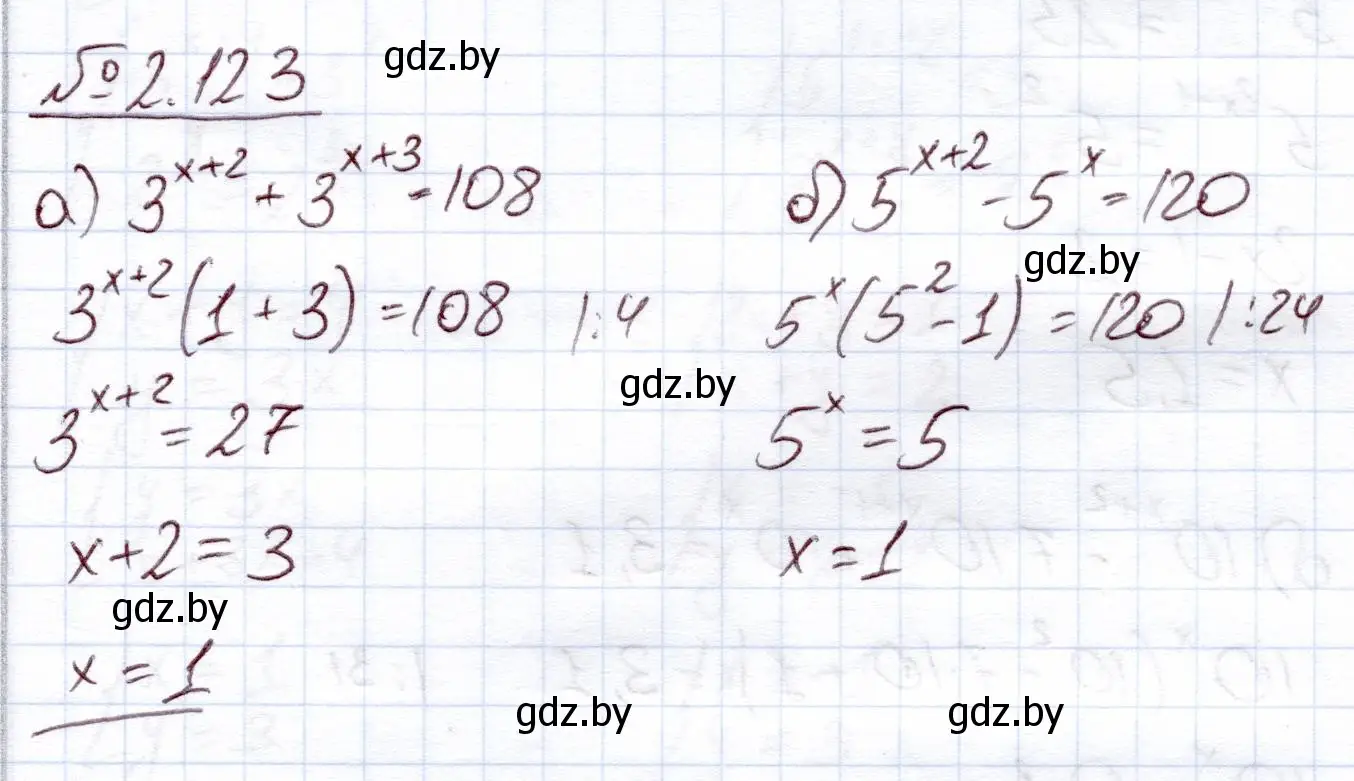 № 2.123
gdz.by
а) 3^{x+2} + 3^{x+3} = 108
3^{x+2} (1 + 3) = 108 |:4
3^{x+2} = 27
x+2 = 3
gdz.by
x = 1
б) 5^{x+2} - 5^x = 120
gdz.by
5^x (5^2 - 1) = 120 |:24
gdz.by
5^x = 5
x = 1
gdz.by
gdz.by